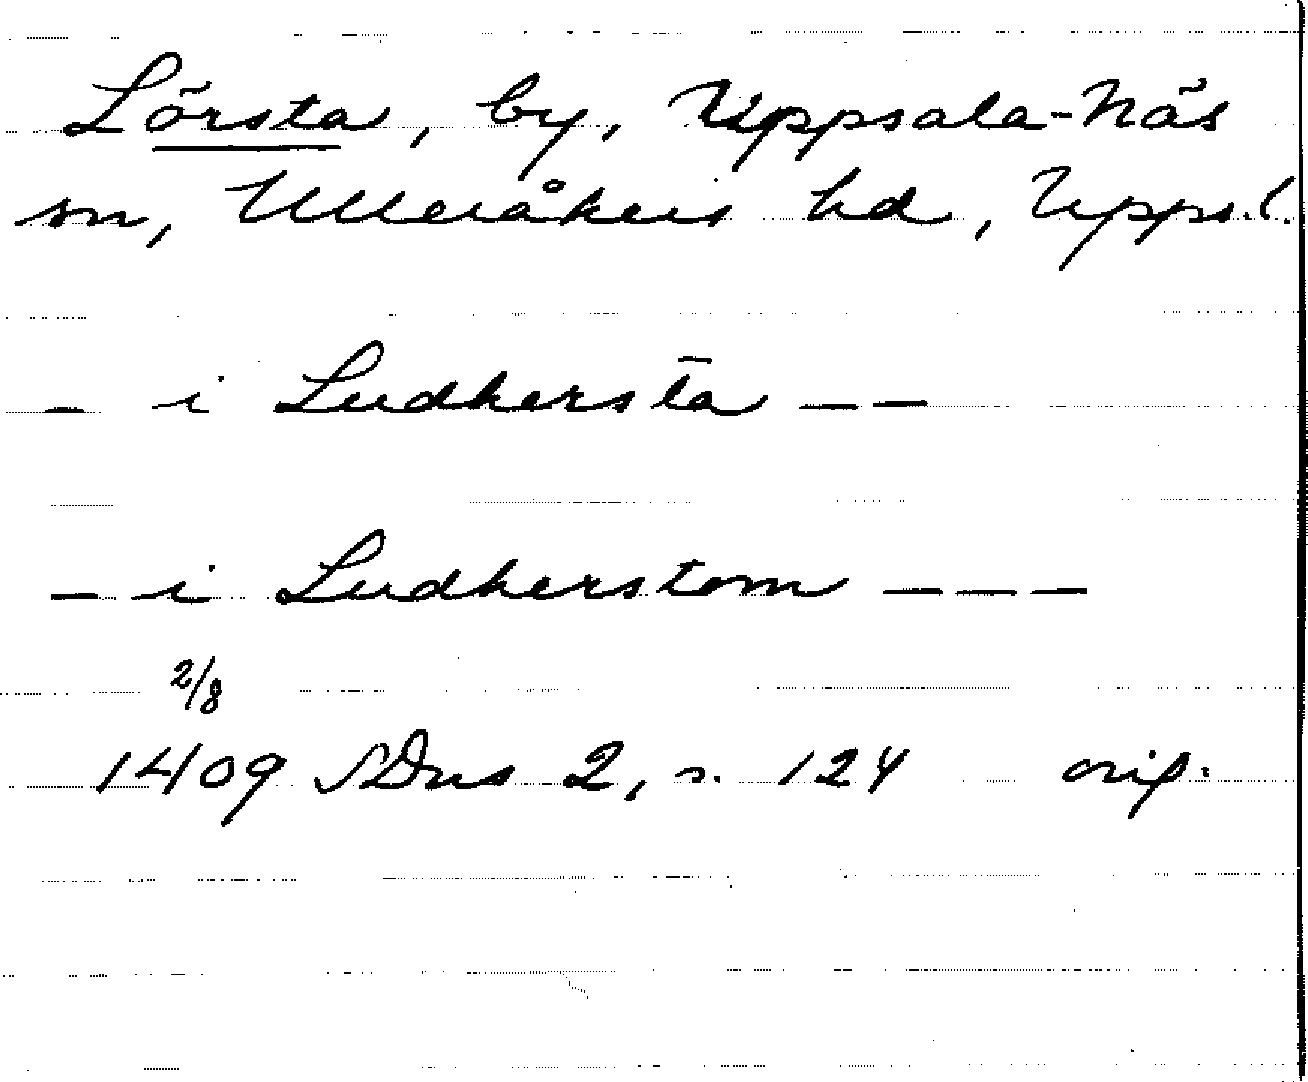 Lörsta, by, Uppsala-Näs
sn, Ulleråkers hd, Upps. l.
- i Ludherstā - -
- i Ludherstom - - -
2/8
1409 SDns 2, s. 124 orig.